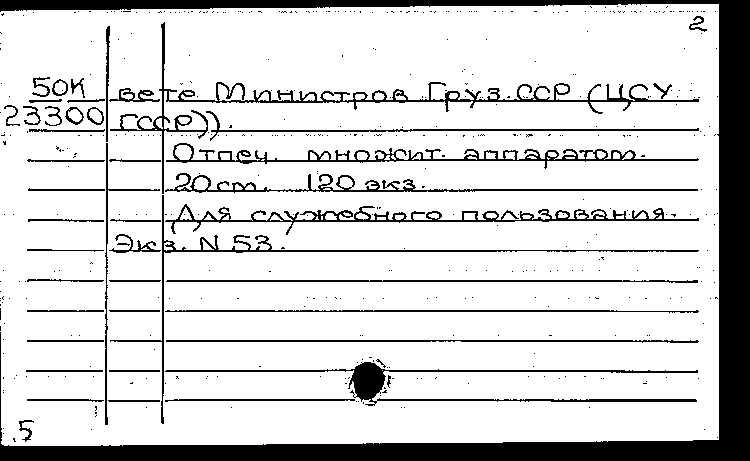 2
50К вете Министров Груз.ССР (ЦСУ
23300 ГССР)).
Отпеч. множит. аппаратом.
20 см. 120 экз.
Для служебного пользования.
Экз. N 53.
5